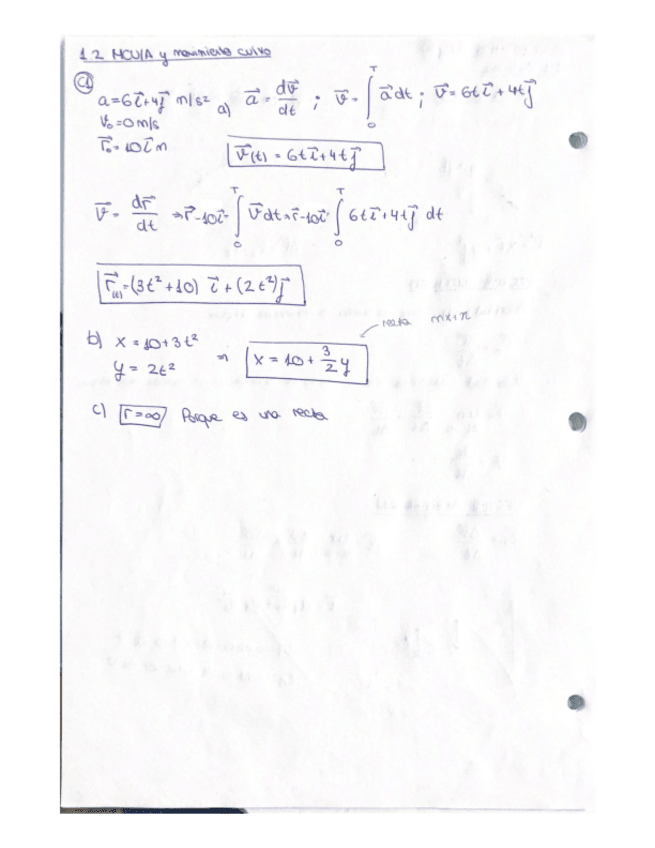 1.2 MCUA y movimiento curvo
① a=6i⃗+4j⃗ m/s² a) a⃗ = dv⃗/dt ; v⃗ = ∫₀ᵀ a⃗ dt ; v⃗ = 6t i⃗ + 4t j⃗
V₀=0 m/s
r⃗₀= 10i⃗ m
v⃗(t) = 6t i⃗ + 4t j⃗
v⃗ = dr⃗/dt ⇒ r⃗-10i⃗ = ∫₀ᵀ v⃗ dt ⇒ r⃗-10i⃗ = ∫₀ᵀ 6t i⃗ + 4t j⃗ dt
r⃗(t) = (3t²+10) i⃗ + (2t²) j⃗
recta mx+n
b) x = 10+3t²
y = 2t² ⇒ x = 10 + 3/2 y
c) r=∞ Porque es una recta